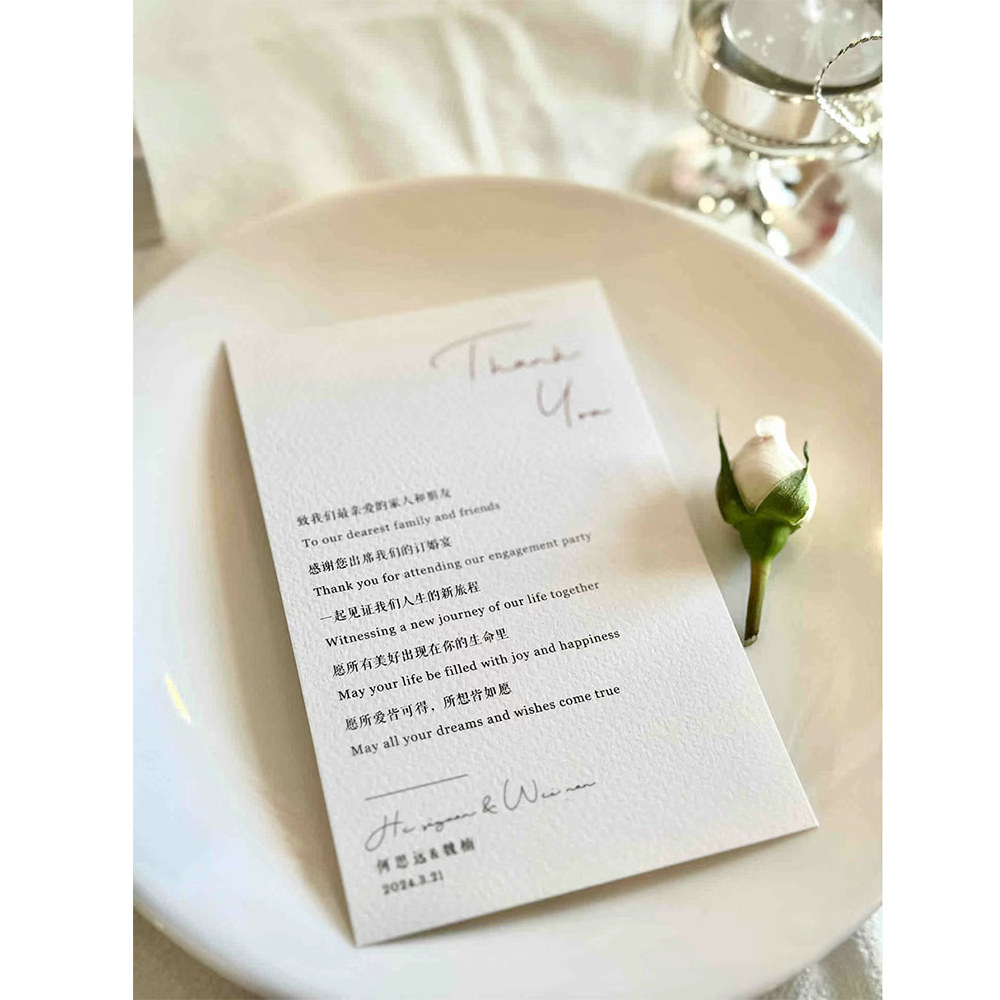 Thank
You
致我们最亲爱的家人和朋友
To our dearest family and friends
感谢您出席我们的订婚宴
Thank you for attending our engagement party
一起见证我们人生的新旅程
Witnessing a new journey of our life together
愿所有美好出现在你的生命里
May your life be filled with joy and happiness
愿所爱皆可得，所想皆如愿
May all your dreams and wishes come true
He siyuan & Wei nan
何思远&魏楠
2024.3.21